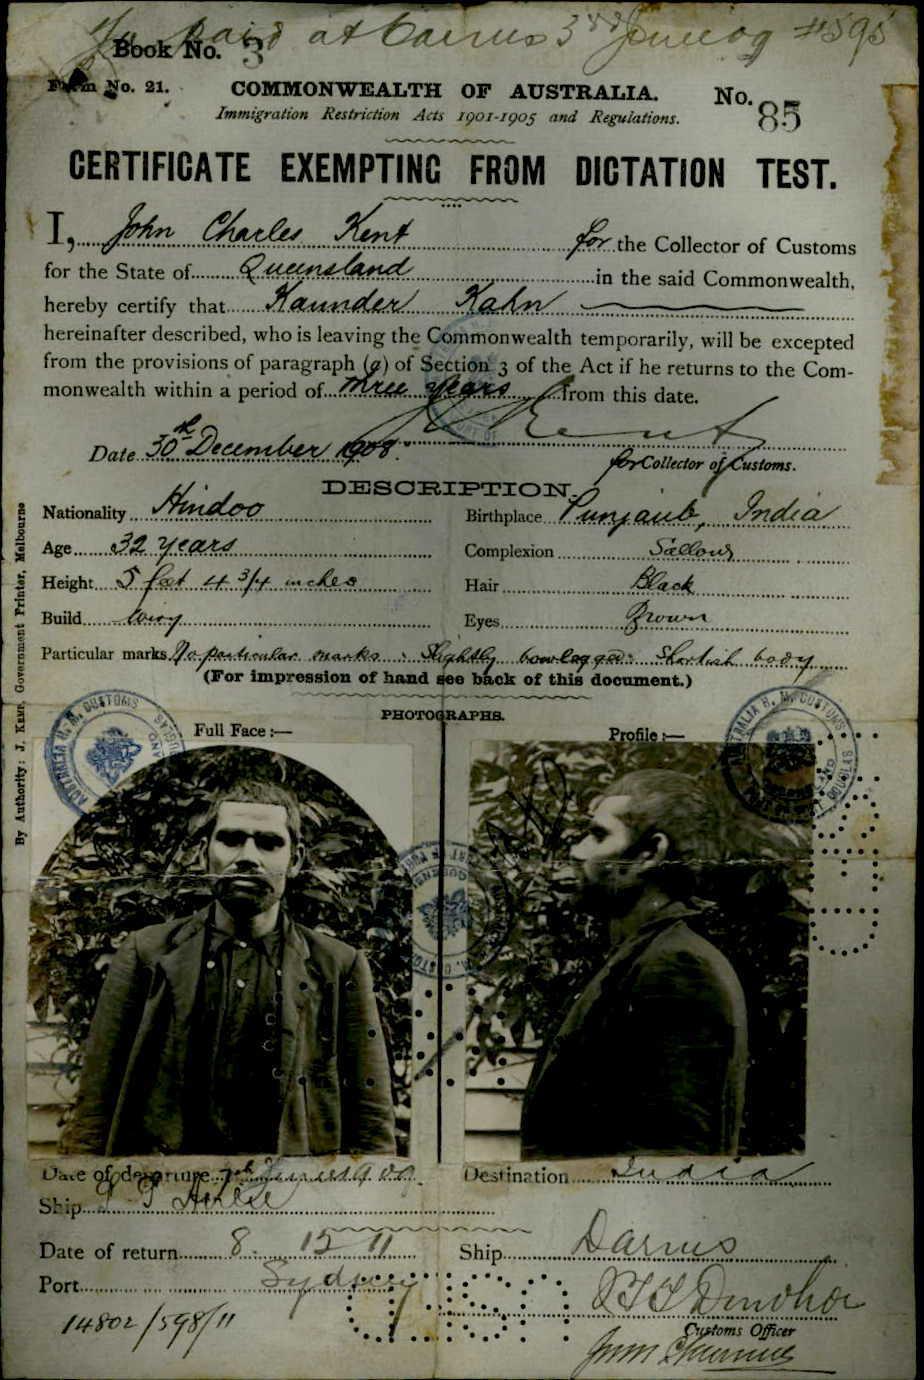 paid at Cairns 3rd June 09 #595
Book No. 3
Form No. 21.
COMMONWEALTH OF AUSTRALIA.
No. 85
Immigration Restriction Acts 1901-1905 and Regulations.
CERTIFICATE EXEMPTING FROM DICTATION TEST.
I, John Charles Kent for the Collector of Customs
for the State of Queensland in the said Commonwealth,
hereby certify that Kaunder Kahn
hereinafter described, who is leaving the Commonwealth temporarily, will be excepted
from the provisions of paragraph (a) of Section 3 of the Act if he returns to the Com-
monwealth within a period of three years from this date.
Kent
Date 30th December 1908.
for Collector of Customs.
DESCRIPTION.
Nationality Hindoo
Birthplace Punjaub, India
Age 32 years
Complexion Sallow
Height 5 feet 4 3/4 inches
Hair Black
Build wiry
Eyes Brown
Particular marks No particular marks. Slightly bowlegged: Shortish body
(For impression of hand see back of this document.)
PHOTOGRAPHS.
Full Face :—
Profile :—
By Authority: J. Kemp, Government Printer, Melbourne
AUSTRALIA H. M. CUSTOMS
AUSTRALIA H. M. CUSTOMS PORT DOUGLAS
Date of departure 7th
Destination India
Ship
Date of return 8. 12 11
Ship Darius
Port Sydney
Customs Officer
14802/598/11